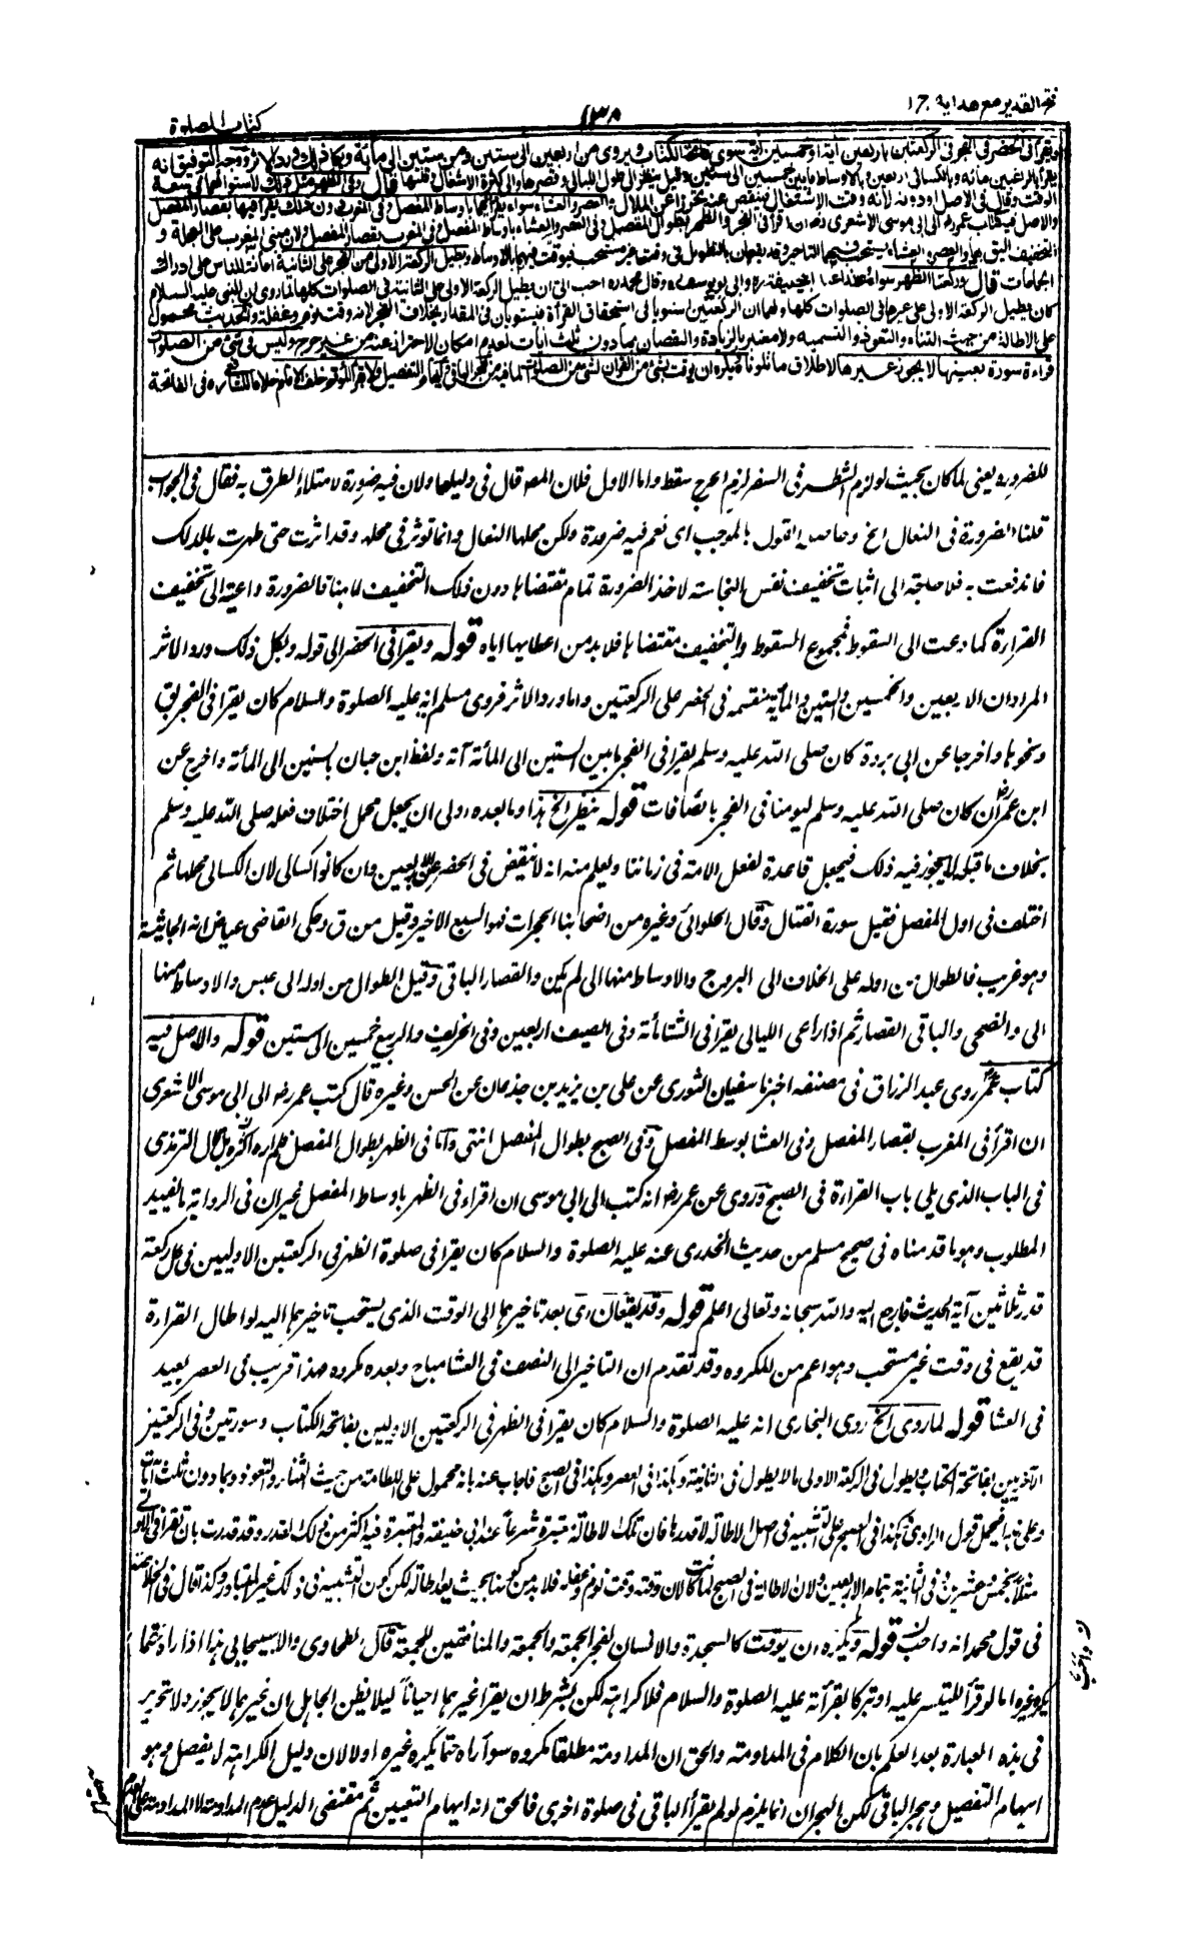 فتح القدير مع هداية ج ١
١٣٨
كتاب الصلوة
ويقرأ في الحضر في الفجر في الركعتين باربعين اية او خمسين اية سوى فاتحة الكتاب ويروى من اربعين الى ستين ومن ستين الى مائة وبكل ذلك ورد الاثر ووجه التوفيق انه
يقرأ بالراغبين مائة وبالكسالى اربعين وبالاوساط ما بين خمسين الى ستين وقيل ينظر الى طول الليالي وقصرها والى كثرة الاشغال وقلتها قال وفي الظهر مثل ذلك لاستوائهما في سعة
الوقت وقال في الاصل او دونه لانه وقت الاشتغال فينقص عنه تحرزا عن الملال والعصر والعشاء سواء يقرأ فيهما باوساط المفصل وفي المغرب دون ذلك يقرأ فيها بقصار المفصل
والاصل فيه كتاب عمر رضه الى ابي موسى الاشعري رضه ان اقرأ في الفجر والظهر بطوال المفصل وفي العصر والعشاء باوساط المفصل وفي المغرب بقصار المفصل ولان مبنى المغرب على العجلة و
التخفيف اليق بها والعصر والعشاء يستحب فيهما التاخير وقد يقعان بالتطويل في وقت غير مستحب فيوقت فيهما بالاوساط ويطيل الركعة الاولى من الفجر على الثانية اعانة للناس على ادراك
الجماعات قال وركعتا الظهر سواء وهذا عند ابي حنيفة ره وابي يوسف ره وقال محمد ره احب الي ان يطيل الركعة الاولى على الثانية في الصلوات كلها لما روي ان النبي عليه السلام
كان يطيل الركعة الاولى على غيرها في الصلوات كلها ولهما ان الركعتين استويا في استحقاق القرأة فيستويان في المقدار بخلاف الفجر لانه وقت نوم وغفلة والحديث محمول
على الاطالة من حيث الثناء والتعوذ والتسمية ولا معتبر بالزيادة والنقصان بما دون ثلث ايات لعدم امكان الاحتراز عنه من غير حرج وليس في شئ من الصلوات
قراءة سورة بعينها لا يجوز غيرها لاطلاق ما تلونا ويكره ان يوقت بشئ من القران لشئ من الصلوات لما فيه من هجر الباقي وايهام التفضيل ولا يقرأ المؤتم خلف الامام خلافا للشافعي ره في الفاتحة
للضرورة يعني لما كان بحيث لو لزم الشطر في السفر لزم الحرج سقط واما الاول فلان المص قال في دليلها ولان فيه ضرورة لامتلاء الطرق به فقال في الجواب
قلنا الضرورة في النعال الخ وحاصله القول بالموجب اى نعم فيه ضرورة ولكن محلها النعال وانما تؤثر في محله وقد اثرت حتى طهرت بالدلك
فاندفعت به فلا حاجة الى اثبات تخفيف نفس النجاسة لاخذ الضرورة تمام مقتضاها دون ذلك التخفيف لا هنا فالضرورة داعية الى تخفيف
القراءة كما دعت الى السقوط فمجموع السقوط والتخفيف مقتضاها فلا بد من اعطائها اياه قوله ويقرأ في الحضر الى قوله وبكل ذلك ورد الاثر
المراد ان الاربعين والخمسين والستين والمأية منقسمة في الحضر على الركعتين واما ورد الاثر فروى مسلم انه عليه الصلوة والسلام كان يقرأ في الفجر بق
ونحوها واخرجا عن ابي برزة كان صلى الله عليه وسلم يقرأ في الفجر ما بين الستين الى المأئة آية ولفظ ابن حبان بالستين الى المأئة واخرج عن
ابن عمر ان كان صلى الله عليه وسلم ليؤمنا في الفجر بالصافات قوله ينظر الخ هذا وما بعده اولى ان يجعل محمل اختلاف فعله صلى الله عليه وسلم
بخلاف ما قبله فيجعل قاعدة لفعل الائمة في زماننا ويعلم منه انه لا ينقص في الحضر عن الاربعين وان كانوا كسالى لان الكسالى محلها ثم
اختلف في اول المفصل فقيل سورة القتال وقال الحلوائي وغيره من اصحابنا الحجرات فهو السبع الاخير وقيل من ق وحكى القاضي عياض انه الجاثية
وهو غريب فالطوال من اوله على الخلاف الى البروج والاوساط منها الى لم يكن والقصار الباقي وقيل الطوال من اوله الى عبس والاوساط منها
الى والضحى والباقي القصار ثم اذا راعى الليالي يقرأ في الشتاء مأئة وفي الصيف اربعين وفي الخريف والربيع خمسين الى ستين قوله والاصل فيه
كتاب عمر روى عبد الرزاق في مصنفه اخبرنا سفيان الثوري عن علي بن يزيد بن جذعان عن الحسن وغيره قال كتب عمر رض الى ابي موسى الاشعري
ان اقرأ في المغرب بقصار المفصل وفي العشا بوسط المفصل وفي الصبح بطوال المفصل انتهى واما في الظهر بطوال المفصل فلم اره بل قال الترمذي
في الباب الذي يلي باب القراءة في الصبح وروي عن عمر رض انه كتب الى ابي موسى ان اقراء في الظهر باوساط المفصل غير ان في الرواية ما يفيد
المطلوب وهو ما قدمناه في صحيح مسلم من حديث الخدري عنه عليه الصلوة والسلام كان يقرأ في صلوة الظهر في الركعتين الاوليين في كل ركعة
قدر ثلاثين آية الحديث فارجع اليه والله سبحانه وتعالى اعلم قوله وقد يقعان اى بعد تاخيرهما الى الوقت الذي يستحب تاخيرهما اليه لو اطال القراءة
قد يقع في وقت غير مستحب وهو اعم من المكروه وقد تقدم ان التاخير الى النصف في العشا مباح وبعده مكروه هذا قريب في العصر بعيد
في العشا قوله لما روى الخ روى البخاري انه عليه الصلوة والسلام كان يقرأ في الظهر في الركعتين الاوليين بفاتحة الكتاب وسورتين وفي الركعتين
الآخريين بفاتحة الكتاب يطول في الركعة الاولى ما لا يطول في الثانية وهكذا في العصر وهكذا في الصبح فاجاب عنه بانه محمول على الاطالة من حيث الثناء والتعوذ وبما دون ثلث آيات
وعلى هذا فيحمل قول الراوي وهكذا في الصبح على التشبيه في اصل الاطالة لا قدرها فان تلك الاطالة معتبرة شرعا عند ابي حنيفة والمعتبرة فيه اكثر من ذلك القدر وقد قدرت بان تقرأ في الاولى
مثلا بخمس وعشرين وفي الثانية تمام الاربعين ولان الاطالة في الصبح لما كانت لان وقته وقت نوم وغفلة فلا بد من كونها بحيث يعد اطالة لكن كون التشبيه في ذلك غير المتبادر ولذا قال في الخلاصة
في قول محمد انه واحب قوله ويكره ان يوقت كالسجدة والانسان لفجر الجمعة والجمعة والمنافقين للجمعة قال الطحاوي والاسبيجابي هذا اذا راه حتما
يكره غيره اما لو قرأ للتيسر عليه او تبركا بقرأته عليه الصلوة والسلام فلا كراهة لكن بشرط ان يقرأ غيرهما احيانا لئلا يظن الجاهل ان غيرهما لا يجوز ولا تحرير
في هذه العبارة بعد العلم بان الكلام في المداومة والحق ان المداومة مطلقا مكروه سواء راه حتما يكره غيره اولا لان دليل الكراهة لا يفصل وهو
ايهام التفضيل وهجر الباقي لكن الهجران انما يلزم لو لم يقرأ الباقي في صلوة اخرى فالحق انه ايهام التعيين ثم مقتضى الدليل عدم المداومة لا المداومة على العدم